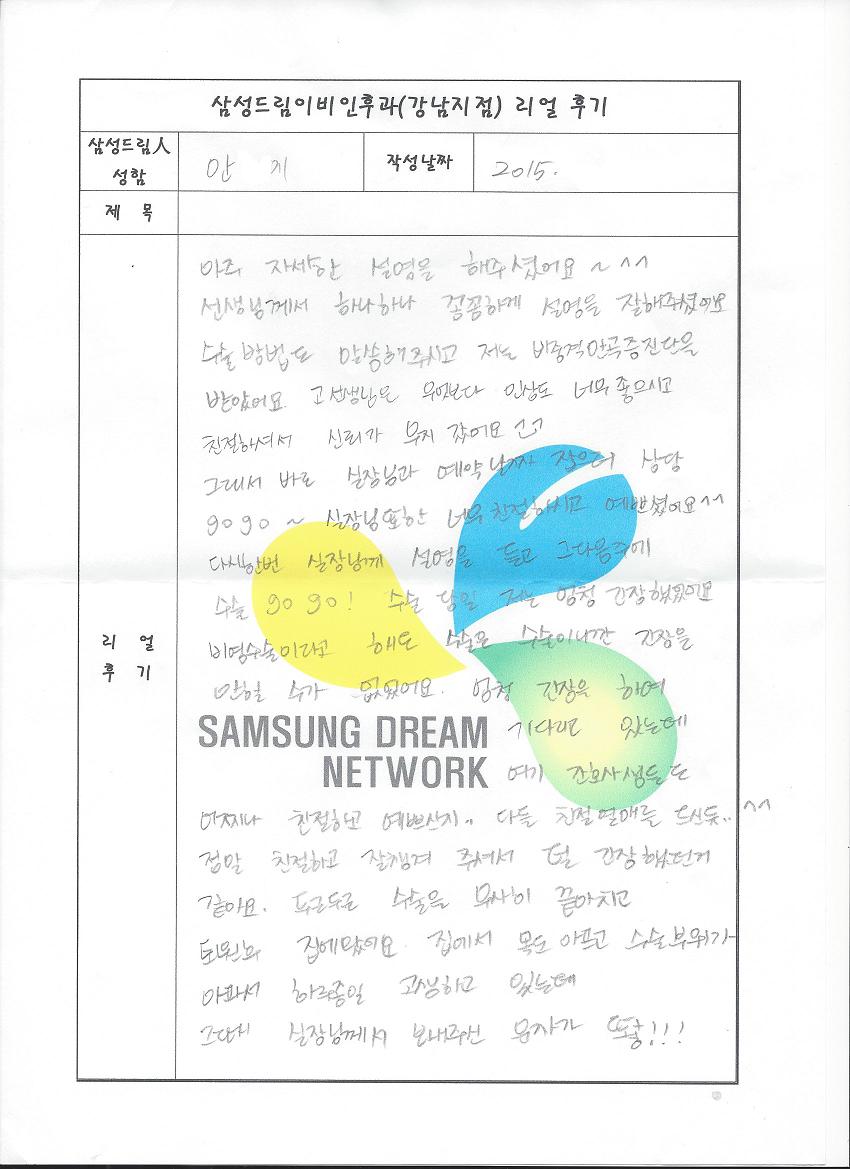 삼성드림이비인후과(강남지점) 리얼 후기
삼성드림人
성함
안 게
작성날짜
2015.
제 목
아주 자세한 설명을 해주셨어요 ~ ^^
선생님께서 하나하나 꼼꼼하게 설명을 잘해주셨어요
수술방법도 말씀해주시고 저는 비중격만곡증진단을
받았어요. 고선생님은 무엇보다 인상도 너무좋으시고
친절하셔서 신뢰가 무지 갔어요
그래서 바로 실장님과 예약날짜 잡으러 상담
gogo ~ 실장님또한 너무친절하시고 예쁘셨어요^^
다시한번 실장님께 설명을 듣고 그다음주에
수술 go go! 수술 당일 저는 엄청 긴장했었어요
비염수술이라고 해도 수술은 수술이니깐 긴장을
안할 수가 없었어요. 엄청 긴장을 하며
기다리고 있는데
여기 간호사쌤들도
어찌나 친절하고 예쁘신지.. 다들 친절열매를 드신듯.. ^^
정말 친절하고 잘챙겨 주셔서 덜 긴장했던거
같아요. 수술은 무사히 끝마치고
퇴원후 집에왔어요. 집에서 목도 아프고 수술부위가
아파서 하루종일 고생하고 있는데
그때 실장님께서 보내주신 유자가 떻!!!
리 얼
후 기
SAMSUNG DREAM
NETWORK